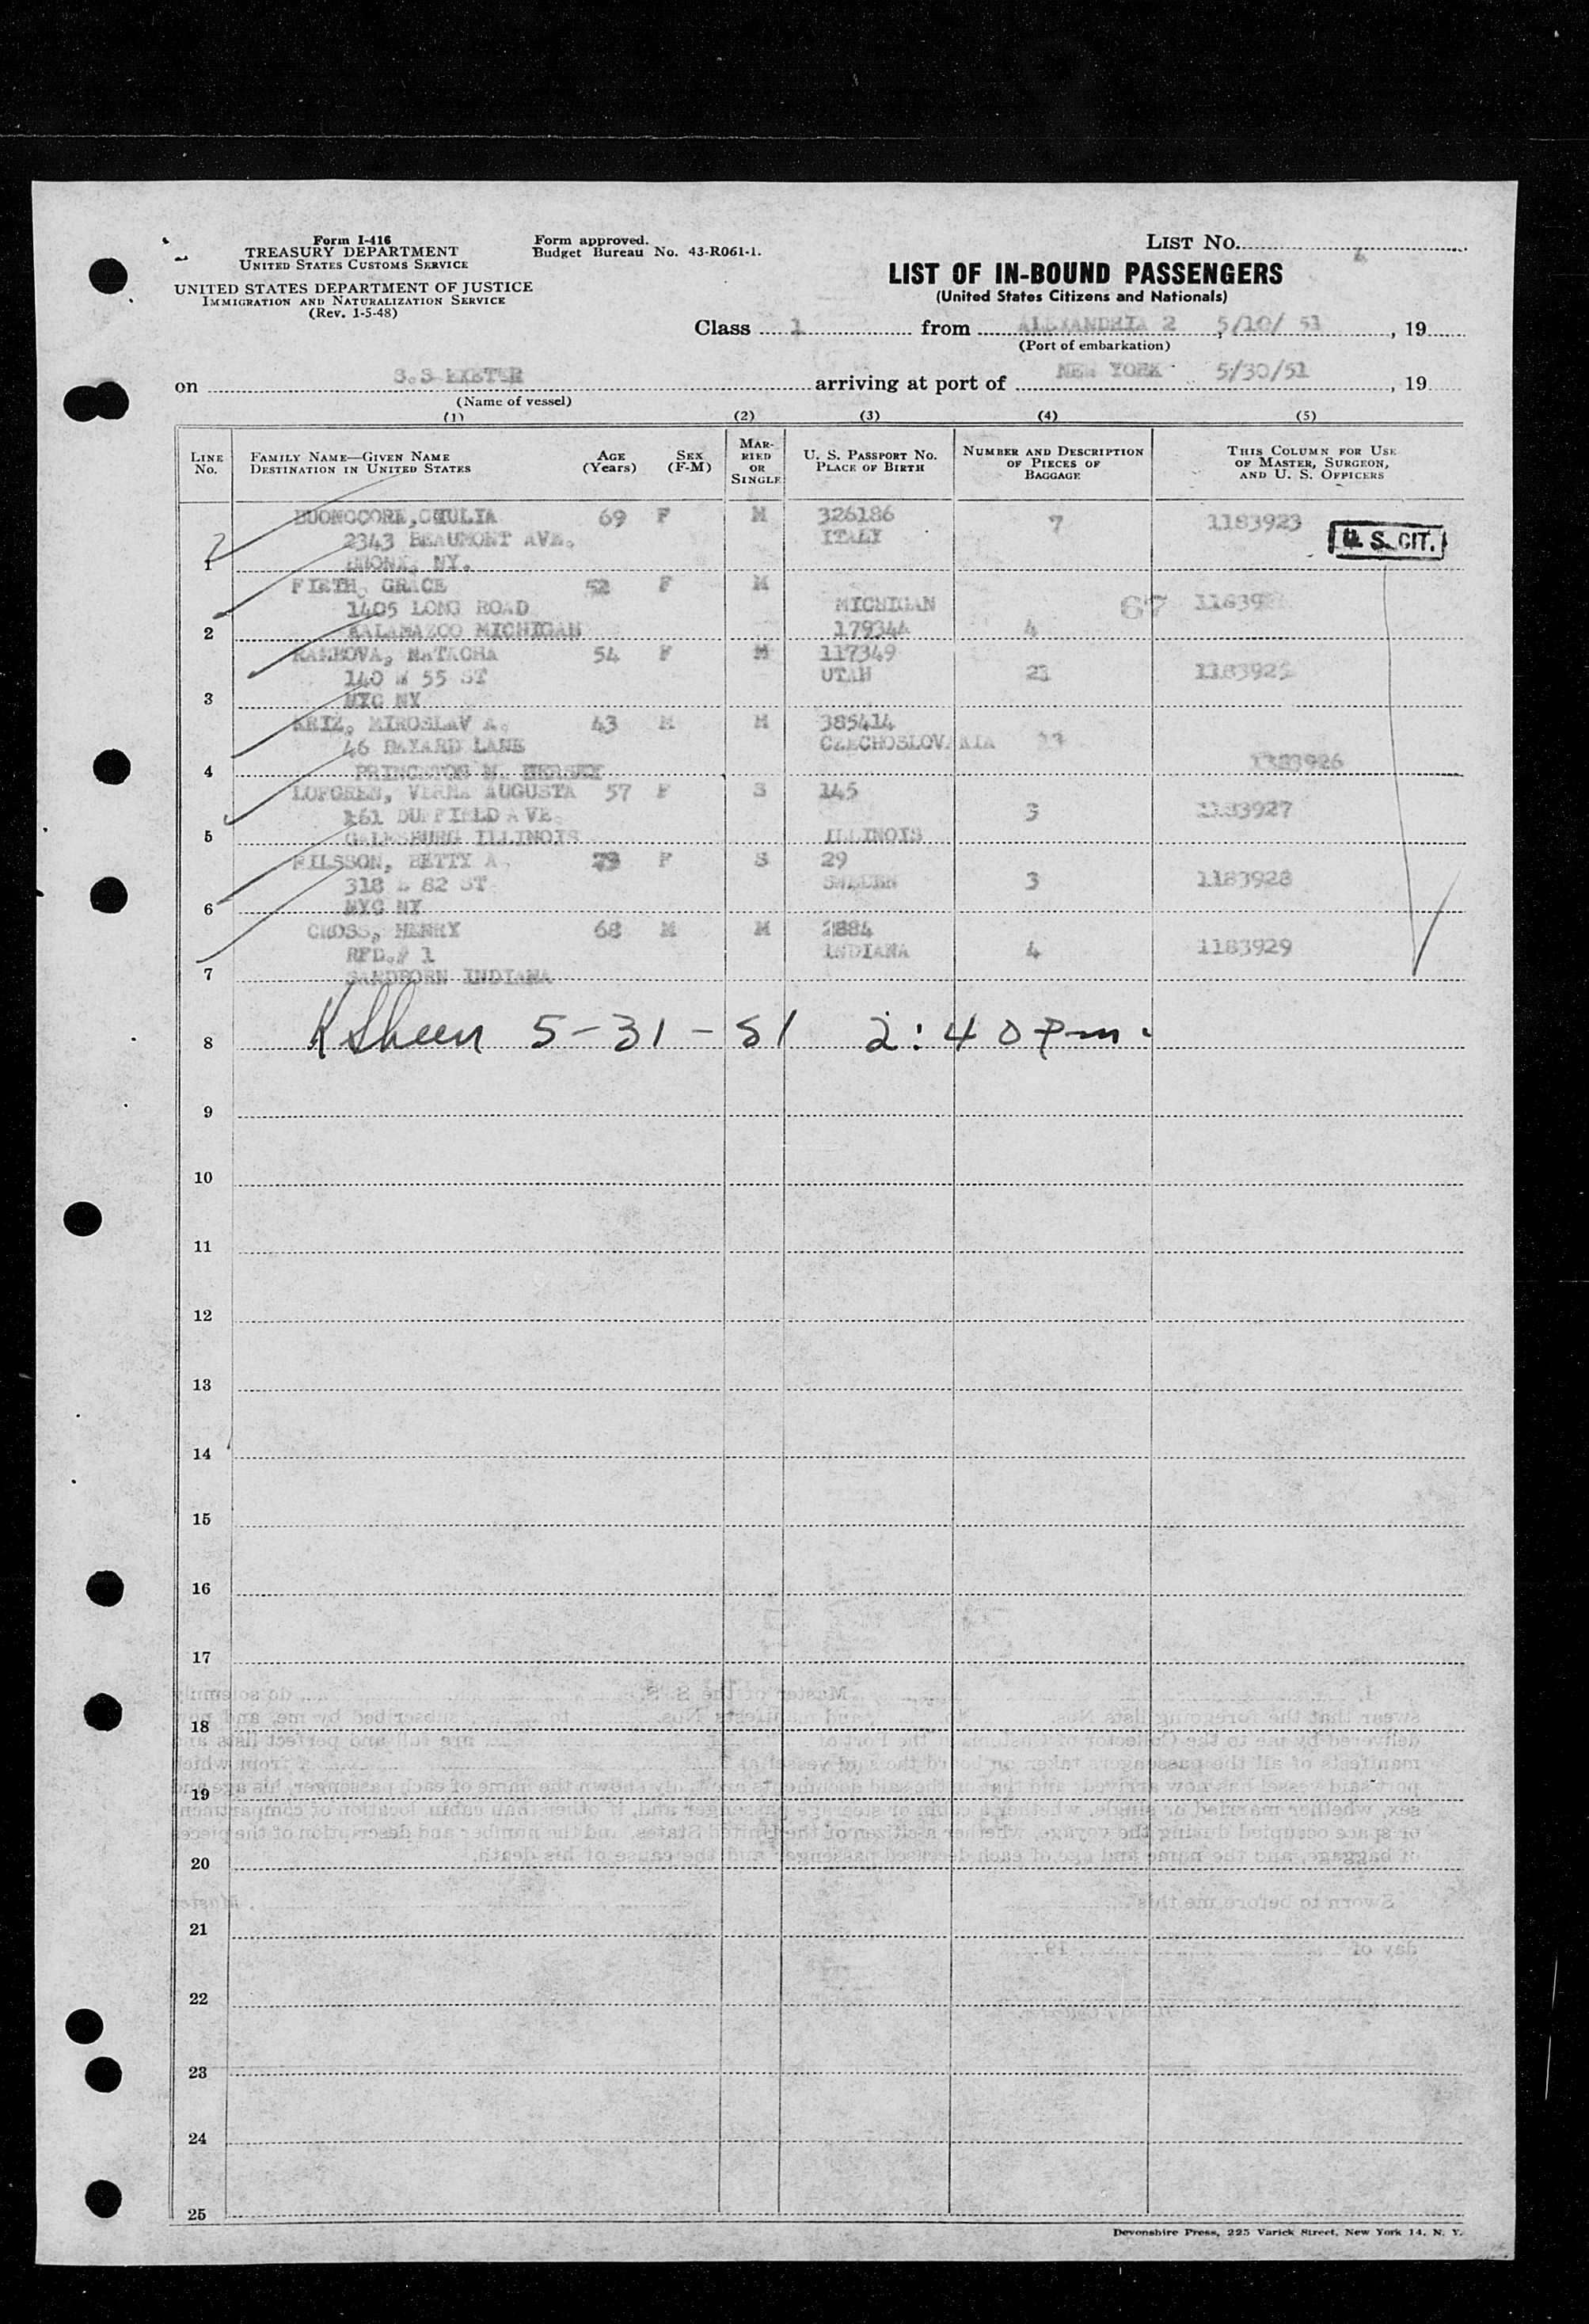 Form I-416
TREASURY DEPARTMENT
UNITED STATES CUSTOMS SERVICE
UNITED STATES DEPARTMENT OF JUSTICE
IMMIGRATION AND NATURALIZATION SERVICE
(Rev. 1-5-48)
Form approved.
Budget Bureau No. 43-R061-1.
LIST NO.
LIST OF IN-BOUND PASSENGERS
(United States Citizens and Nationals)
Class 1 from ALEXANDRIA 2 , 5/10/ 51 , 19
(Port of embarkation)
on S.S EXETER arriving at port of NEW YORK 5/30/51 , 19
(Name of vessel)
(1) (2) (3) (4) (5)
LINE NO. FAMILY NAME—GIVEN NAME DESTINATION IN UNITED STATES AGE (Years) SEX (F-M) MARRIED OR SINGLE U. S. PASSPORT NO. PLACE OF BIRTH NUMBER AND DESCRIPTION OF PIECES OF BAGGAGE THIS COLUMN FOR USE OF MASTER, SURGEON, AND U. S. OFFICERS
BUONOCORE, GIULIA 69 F M 326186 7 1183923
2343 BEAUMONT AVE. ITALY U. S. CIT.
1 BRONX, NY.
FIRTH, GRACE 52 F M
1405 LONG ROAD MICHIGAN 67 11839
2 KALAMAZOO MICHIGAN 179344 4
RAMBOVA, NATACHA 54 F M 117349
140 W 55 ST UTAH 21 1183925
3 NYC NY
KRIZ, MIROSLAV A. 43 M M 385414
46 BAYARD LANE CZECHOSLOVAKIA
4 PRINCETON N. JERSEY 1183926
LOFGREN, VERNA AUGUSTA 57 F S 145
161 DUFFIELD AVE. 3 1183927
5 GALESBURG ILLINOIS ILLINOIS
NILSSON, BETTY A. 79 F S 29
318 E 82 ST. SWEDEN 3 1183928
6 NYC NY
CROSS, HENRY 68 M M 2884
RFD.# 1 INDIANA 4 1183929
7 SANDBORN INDIANA
8 K Sheen 5-31-51 2:40 pm.
9
10
11
12
13
14
15
16
17
18
19
20
21
22
23
24
25
Devonshire Press, 225 Varick Street, New York 14, N. Y.